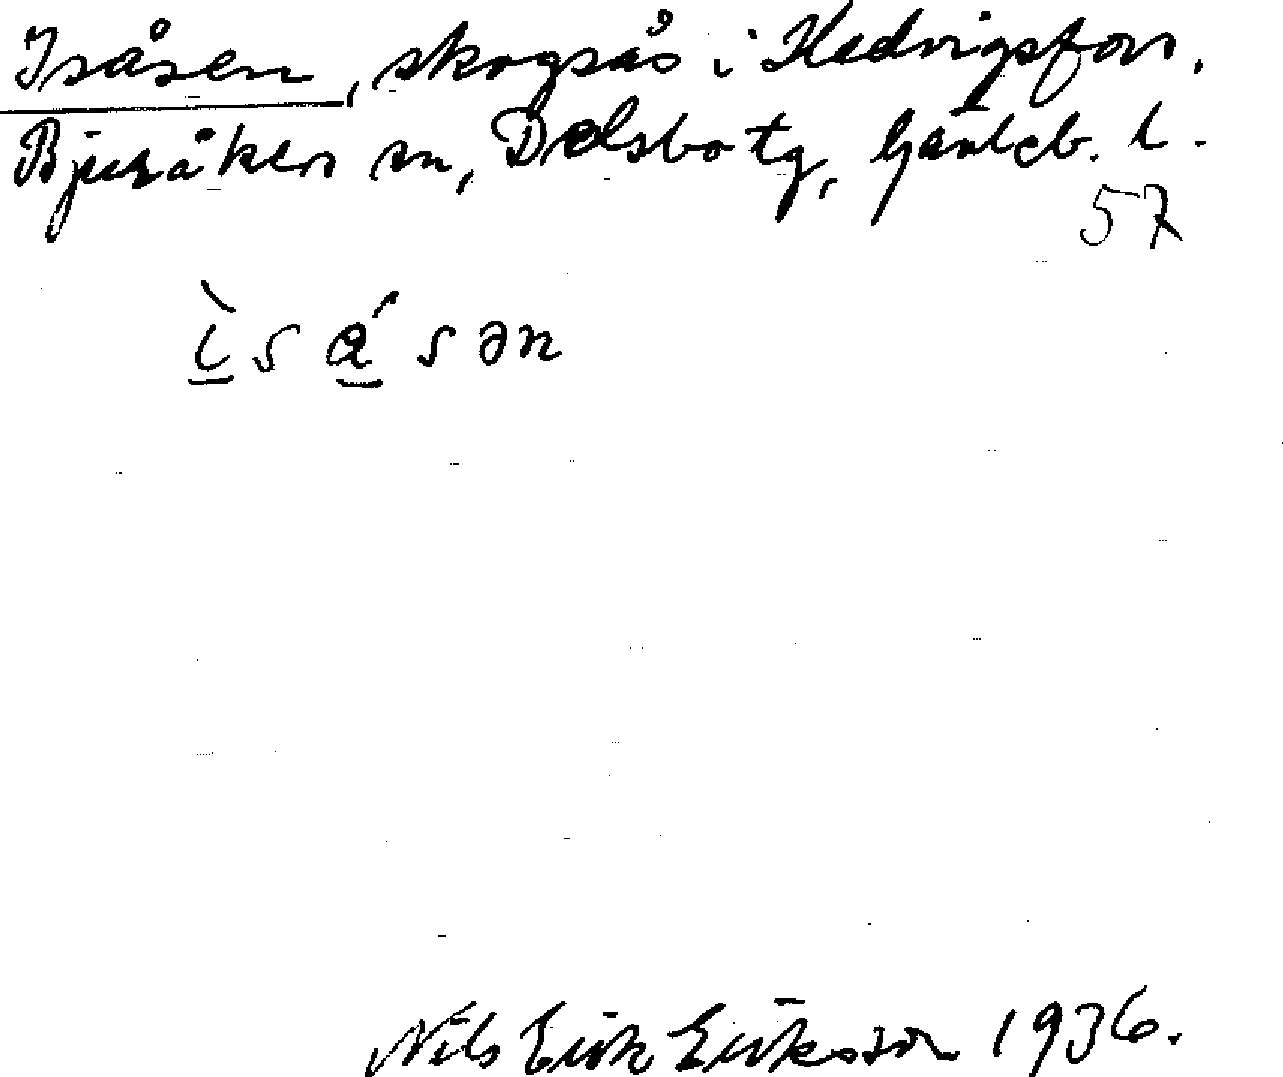 Isåsen, skogsås i Hedvigsfors.
Bjuråkers sn, Delsbo tg, Gävleb. l.
57
ı̀sásən
Nils Erik Eriksson 1936.